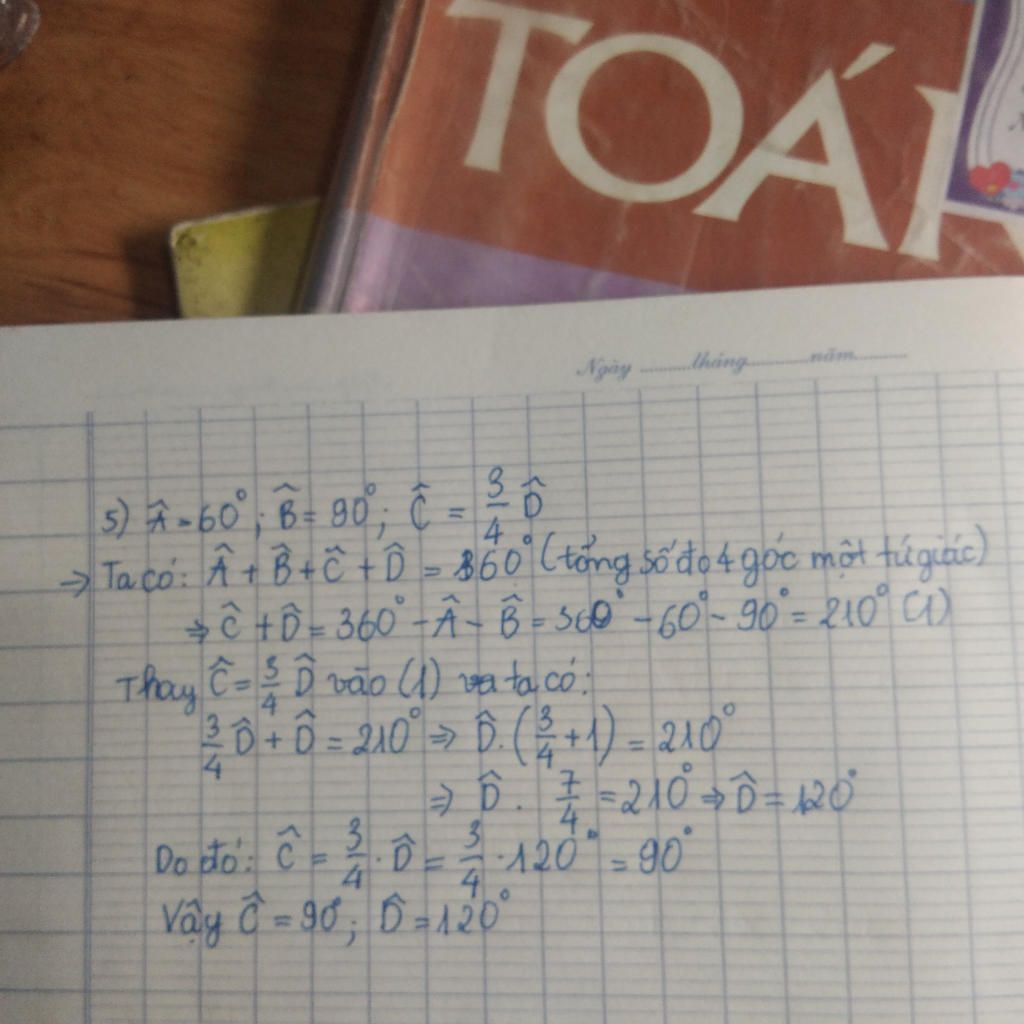 TOÁN
Ngày ...........tháng............năm..........
5) Â = 60°; B̂ = 90°; Ĉ = 3/4 D̂
→ Ta có: Â + B̂ + Ĉ + D̂ = 360° (tổng số đo 4 góc một tứ giác)
⇒ Ĉ + D̂ = 360° - Â - B̂ = 360° - 60° - 90° = 210° (1)
Thay Ĉ = 3/4 D̂ vào (1) ta có:
3/4 D̂ + D̂ = 210° ⇒ D̂ . (3/4 + 1) = 210°
⇒ D̂ . 7/4 = 210° ⇒ D̂ = 120°
Do đó: Ĉ = 3/4 . D̂ = 3/4 . 120° = 90°
Vậy Ĉ = 90°; D̂ = 120°